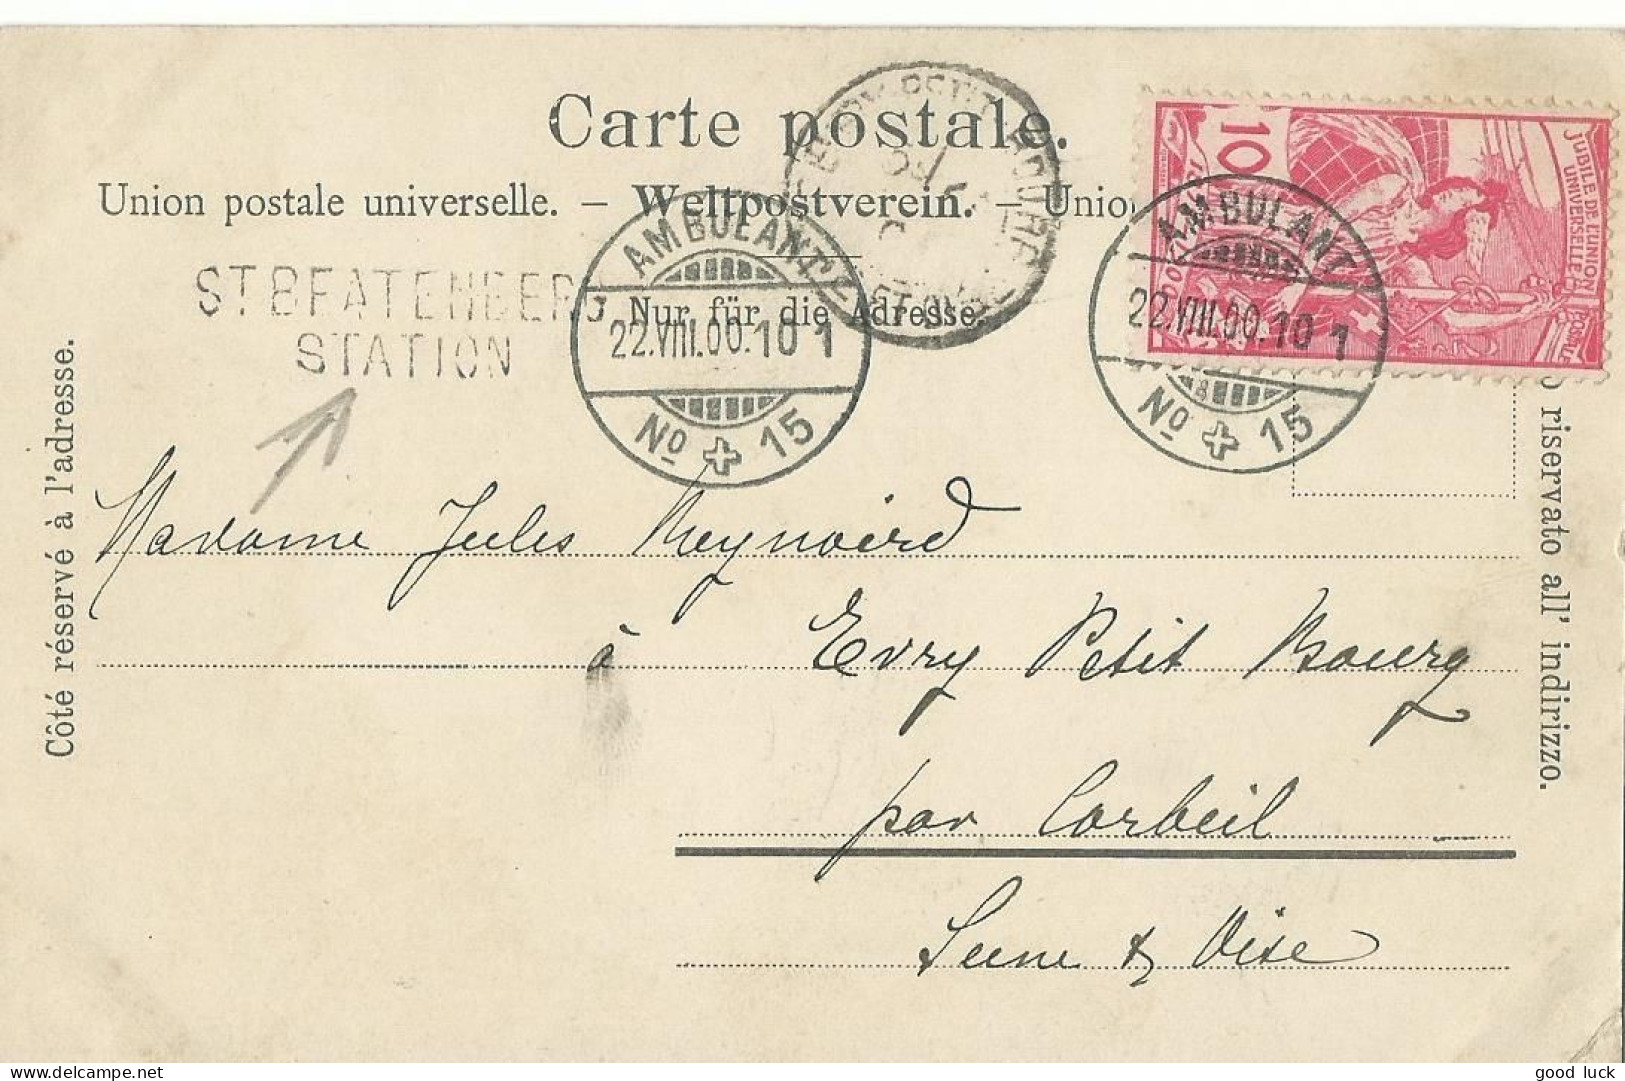 Carte postale.
Union postale universelle. – Weltpostverein. – Unio
Nur für die Adresse.
ST BEATENBERG
STATION
AMBULANT
22.VIII.00.10 1
No 15
AMBULANT
22.VIII.00.10 1
No 15
10
JUBILÉ DE L'UNION
UNIVERSELLE
POSTALE
Côté réservé à l'adresse.
riservato all' indirizzo.
Madame Jules Meynaird
à Evry Petit Bourg
par Corbeil
Seine & Oise
delcampe.net
good luck